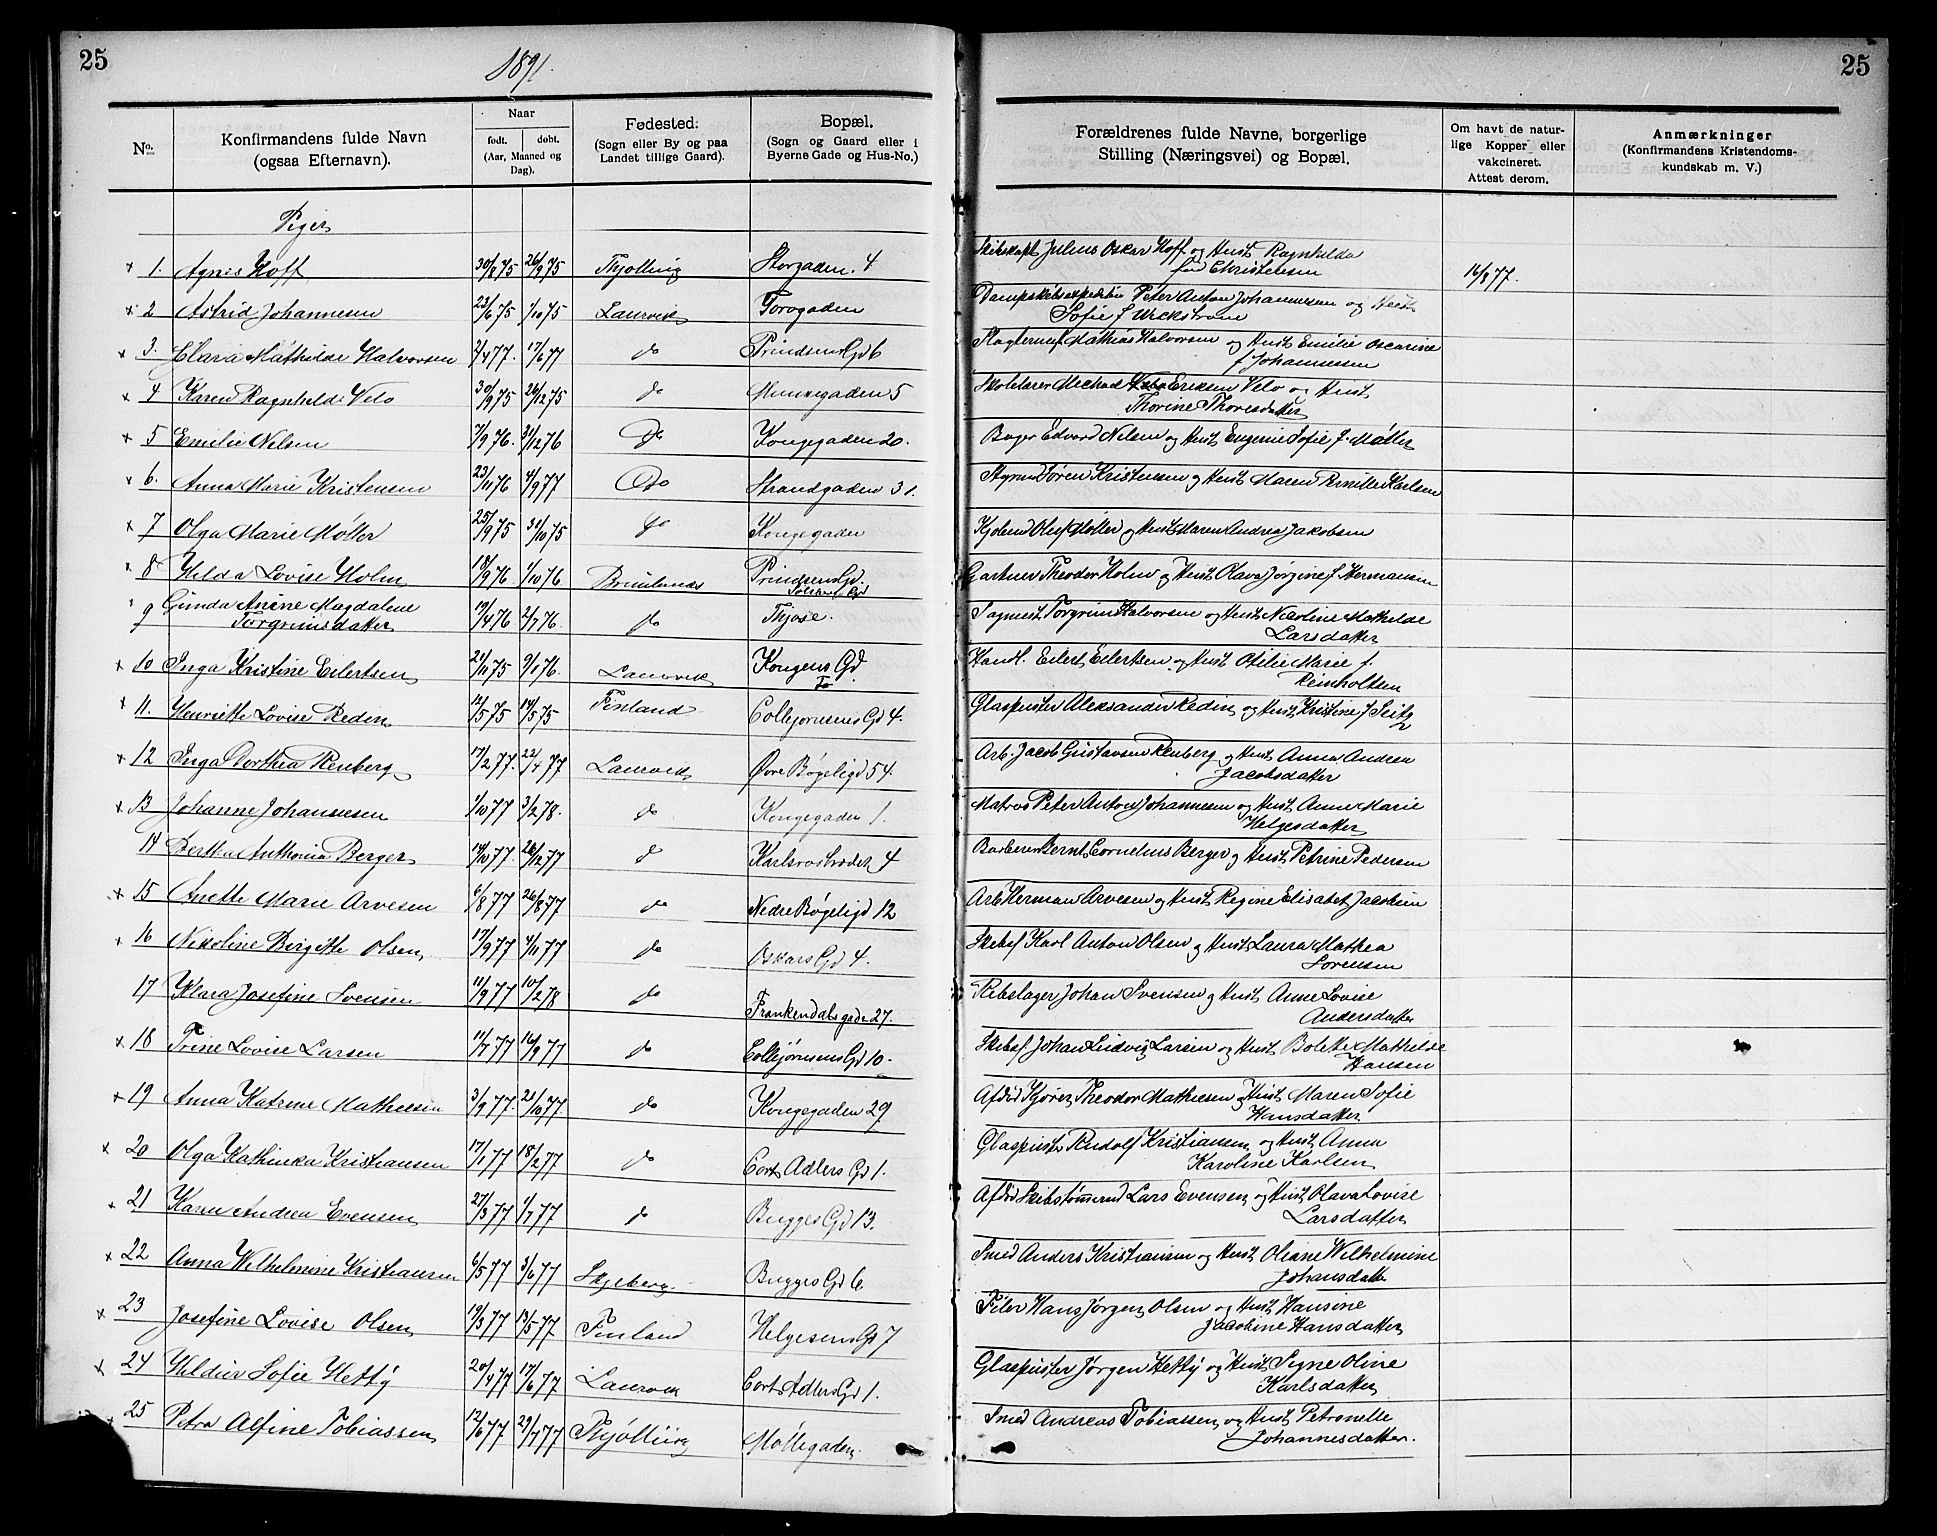 25
1891.
25
No.
Konfirmandens fulde Navn
(ogsaa Efternavn).
Naar
født. døbt.
(Aar, Maaned og
Dag).
Fødested:
(Sogn eller By og paa
Landet tillige Gaard).
Bopæl.
(Sogn og Gaard eller i
Byerne Gade og Hus-No.)
Forældrenes fulde Navne, borgerlige
Stilling (Næringsvei) og Bopæl.
Om havt de natur-
lige Kopper eller
vakcineret.
Attest derom.
Anmærkninger
(Konfirmandens Kristendoms-
kundskab m. V.)
Piger
1. Agnes Hoff 30/8 75 26/9 75 Thjølling Storgaden. 4 Skibskapt Julius Oskar Hoff og Hust Ragnhilda
fød Christensen 16/8 77.
2 Astrid Johannesen 23/6 75 1/10 75 Laurvik Torvgaden Dampskibsexpeditør Peter Anton Johannesen og Hust
Sofie f
3. Clara Mathilde Halvorsen 2/4 77. 17/6 77 do Prindsens Gd 6 Mathias Halvorsen og Hust Emilie Oscarine
f Johannessen
4 Karen Ragnhilde Velo 30/9 75 26/12 75 do Munkegaden 5 Skolelærer Eriksen Velo og Hust
Thorine Thoresdatter
5 Emilie Nilsen 7/9 76. 31/12 76 Do Kongegaden 20. Bager Edvard Nilsen og Hust Eugenie Sofie f. Møller
6. Anna Marie Kristensen 23/11 76 4/9 77 Do Strandgaden 31. Styrmd Søren Kristensen og Hust Maren Pernille Karlsen
7 Olga Marie Møller 25/9 75 31/10 75 do Kongegaden Kjøbmd Oluf Møller og Hust Maren Andrea Jakobsen
8 Hilda Lovise Holm 18/9 76 1/10 76 Brunlanes Prindsens Gd. Gartner Theodor Holm og Hust Olava Jørgine f Hermansen
9 Gunda Anine Magdalene
Torgrimsdatter 19/4 76 2/7 76. do Thjose. Sagmest. Torgrim Halvorsen og Hust Nicoline Mathilde
Larsdatter
10 Inga Kristine Eilertsen 21/11 75 9/1 76. Laurvik Kongens Gd. Handl. Eilert Eilertsen og Hust Otilie Marie f.
Reinholtsen
11. Henriette Lovise Redin 12/5 75 14/5 75 Finland Collejørnsens Gd 4. Glaspuster Aleksander Redin og Hust Kristine f Seitz
12 Inga Dorthea Renberg 17/2 77. 22/4 77 Laurvik Øvre Bøgeligd 54. Arb. Jacob Gustavsen Renberg og Hust Anna Andrea
Jacobsdatter
13 Johanne Johannesen 1/10 77 3/2 78. do Kongegaden 1. Matros Peter Anton Johannesen og Hust Anne Marie
Helgesdatter
14 Berth Anthonia Berger 14/10 77. 26/12 77 do Karlsrobrodet 4 Barberer Bernt Cornelius Berger og Hust Petrine Pedersen
15 Anette Marie Arvesen 6/8 77 26/8 77 do Nedre Bøgeligd 12 Arb Herman Arvesen og Hust Regine Elisabet Jacobsen
16 Nikoline Birgitte Olsen 17/9 77 4/11 77 do Oskars Gd 4. Skibsf Karl Anton Olsen og Hust Laura Mathea
Sørensen
17 Klara Josefine Svensen 11/9 77 10/2 78 do Frankendalsgade 27. Rebslager Johan Svensen og Hust Anne Lovise
Andersdatter
18 Trine Lovise Larsen 11/7 77 16/9 77 do Collejørnsens Gd 10. Skibsf. Johan Ludvig Larsen og Hust Bolette Mathilde
Hansen
19 Anna Katrine Mathiesen 3/9 77. 28/10 77. do Kongegaden 29 Afdød Kjører Theodor Mathiesen og Hust Maren Sofie
Hansdatter
20 Olga Kathinka Kristiansen 17/1 77 18/2 77 do Cort Adlers Gd 1. Glaspuster Rudolf Kristiansen og Hust Anna
Karoline Karlsen
21 Karen Andrea Evensen 27/3 77 1/7 77 do Bugges Gd 13. Afdød Skibstømmermd Lars Evensen og Hust Olava Lovise
Larsdatter
22 Anna Wilhelmine Kristiansen 6/5 77 3/6 77 Skjeberg Bugges Gd 6. Smed Anders Kristiansen og Hust Oliane Wilhelmine
Johansdatter
23 Josefine Lovise Olsen 19/3 77 13/5 77 Finland Helgesens Gd 7 Filer Hans Jørgen Olsen og Hust Hansine
Jacobine Hansdatter
24 Hildur Sofie Hetty 20/4 77 17/6 77 Laurvik Cort Adlers Gd 1. Glaspuster Jørgen Hetty og Hust Signe Oline
Karlsdatter
25 Petra Alfine Tobiassen 12/6 77 29/7 77 Thjølling Møllegaden Smed Andreas Tobiassen og Hust Petronelle
Johannesdatter.